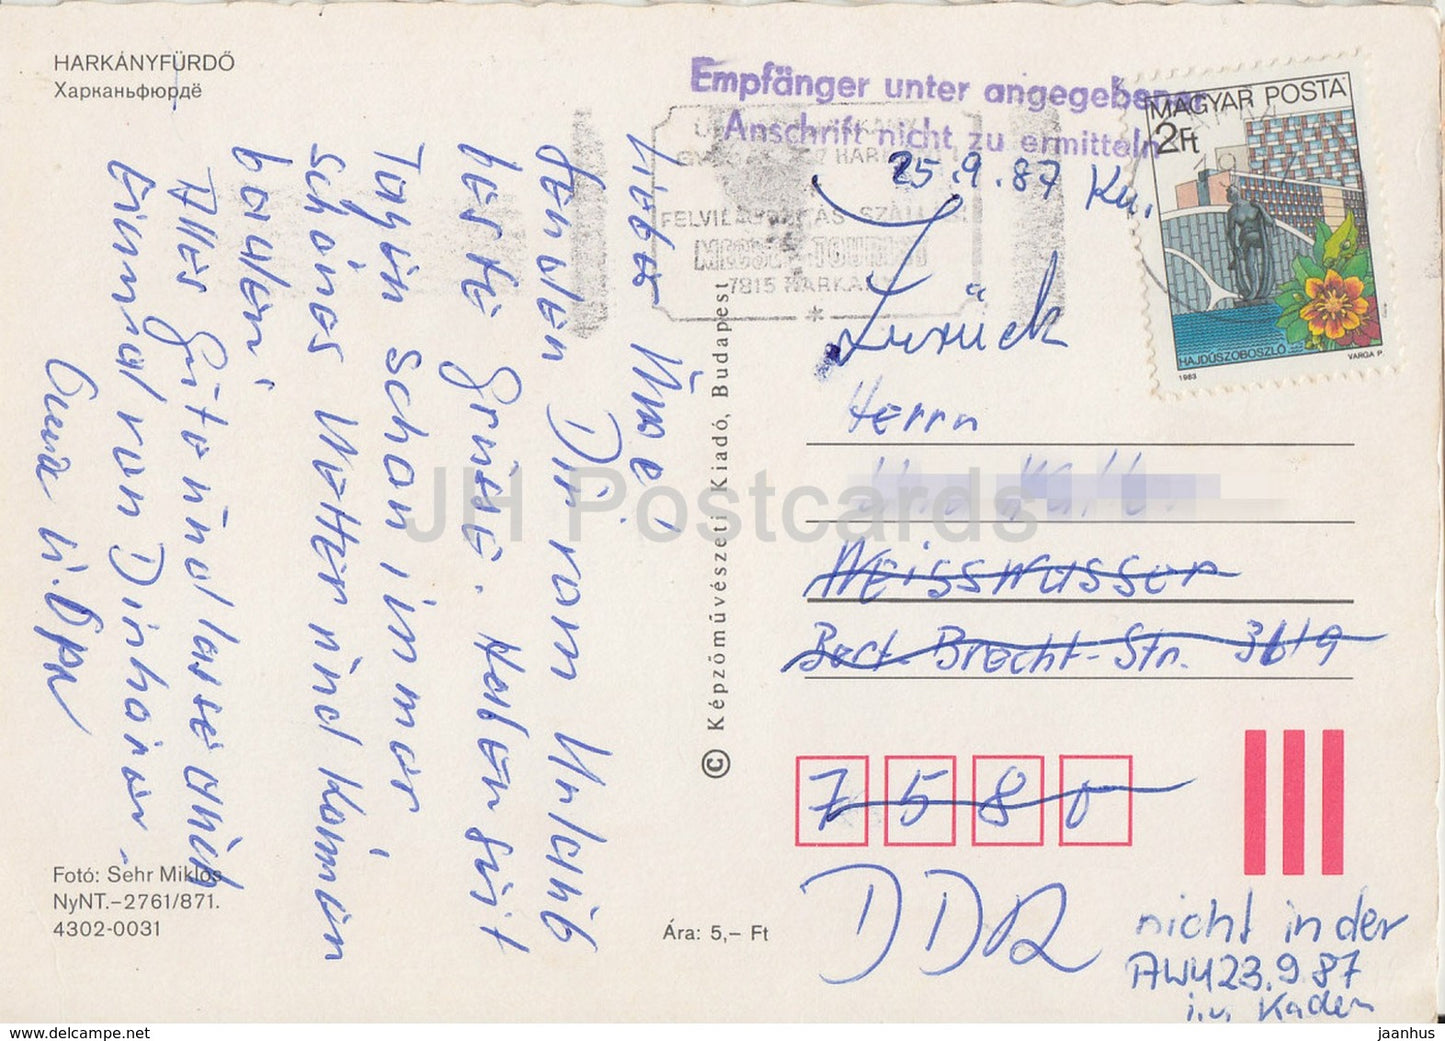 HARKÁNYFÜRDŐ
Харканьфюрдё
Empfänger unter angegebener
Anschrift nicht zu ermitteln
25.9.87
Zurück
MAGYAR POSTA
2Ft
HAJDÚSZOBOSZLÓ
1983
VARGA P.
FELVILÁGOSÍTÁS-SZÁLLÁS
MECSEK TOURIST
7815 HARKÁNY
*
Lieber Uwe!
senden Dir vom Urlaub
beste Grüsse. Haben seit
Tagen schon immer
schönes Wetter und können
baden
Alles Gute und lasse auch
Einmal von Dir hören
Oma u. Opa
© Képzőművészeti Kiadó, Budapest
Herrn
Weisswasser
Bert-Brecht-Str.
7 5 8 0
DDR
nicht in der
AWU 23.9.87
i.v. Kaden
Fotó: Sehr Miklós
NyNT.–2761/871.
4302-0031
Ára: 5,– Ft
JH Postcards
www.delcampe.net
jaanhus